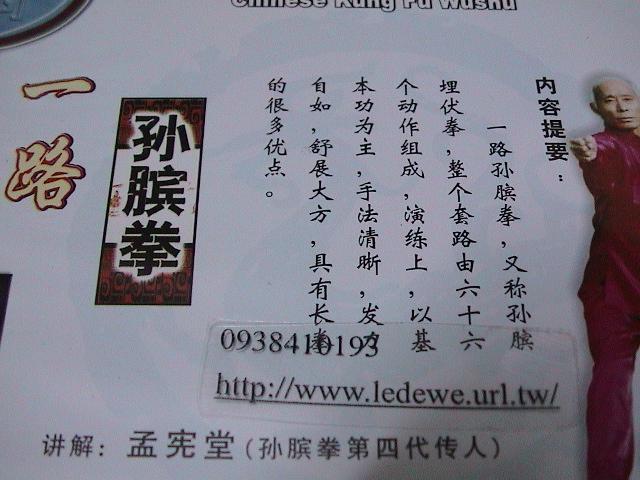 Chinese Kung Fu Wushu
一路
孙膑拳
内容提要：
一路孙膑拳，又称孙膑
埋伏拳，整个套路由六十六
个动作组成，演练上，以基
本功为主，手法清晰，发力
自如，舒展大方，具有长拳
的很多优点。
0938410193
http://www.ledewe.url.tw/
讲解：孟宪堂（孙膑拳第四代传人）